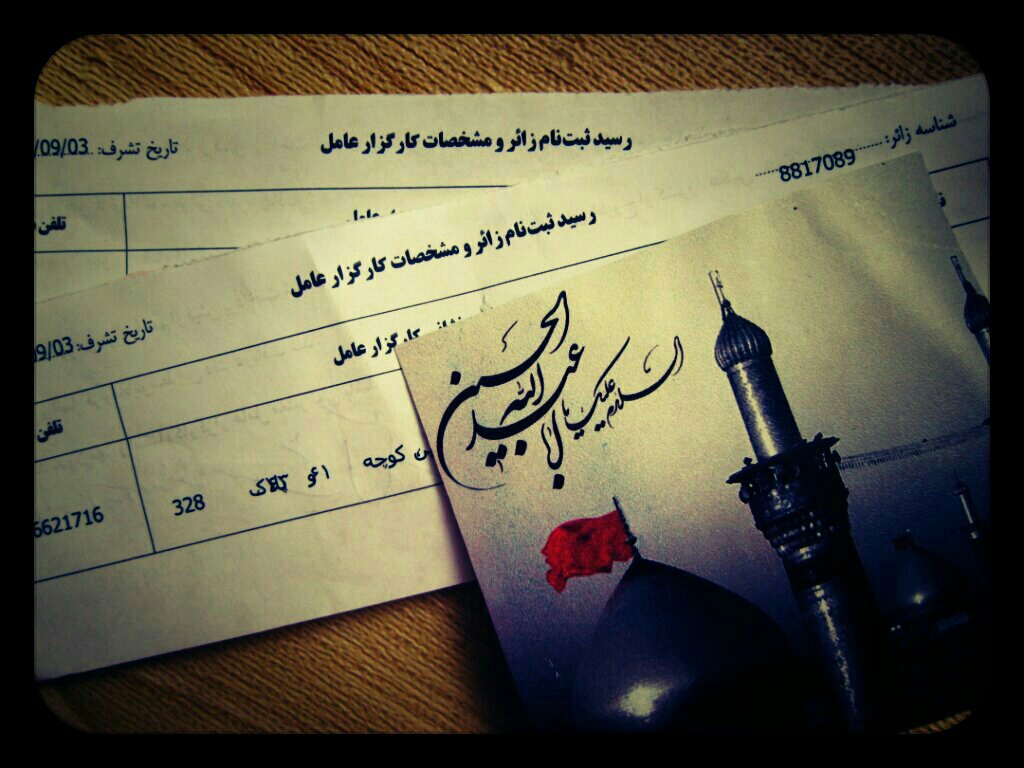 رسید ثبت‌نام زائر و مشخصات کارگزار عامل
تاریخ تشرف: /09/03
تلفن
شناسه زائر: 8817089
رسید ثبت‌نام زائر و مشخصات کارگزار عامل
تاریخ تشرف: 09/03
نشانی کارگزار عامل
تلفن
کوچه پلاک 328
6621716
السلام علیک یا
ابا عبدالله
الحسین